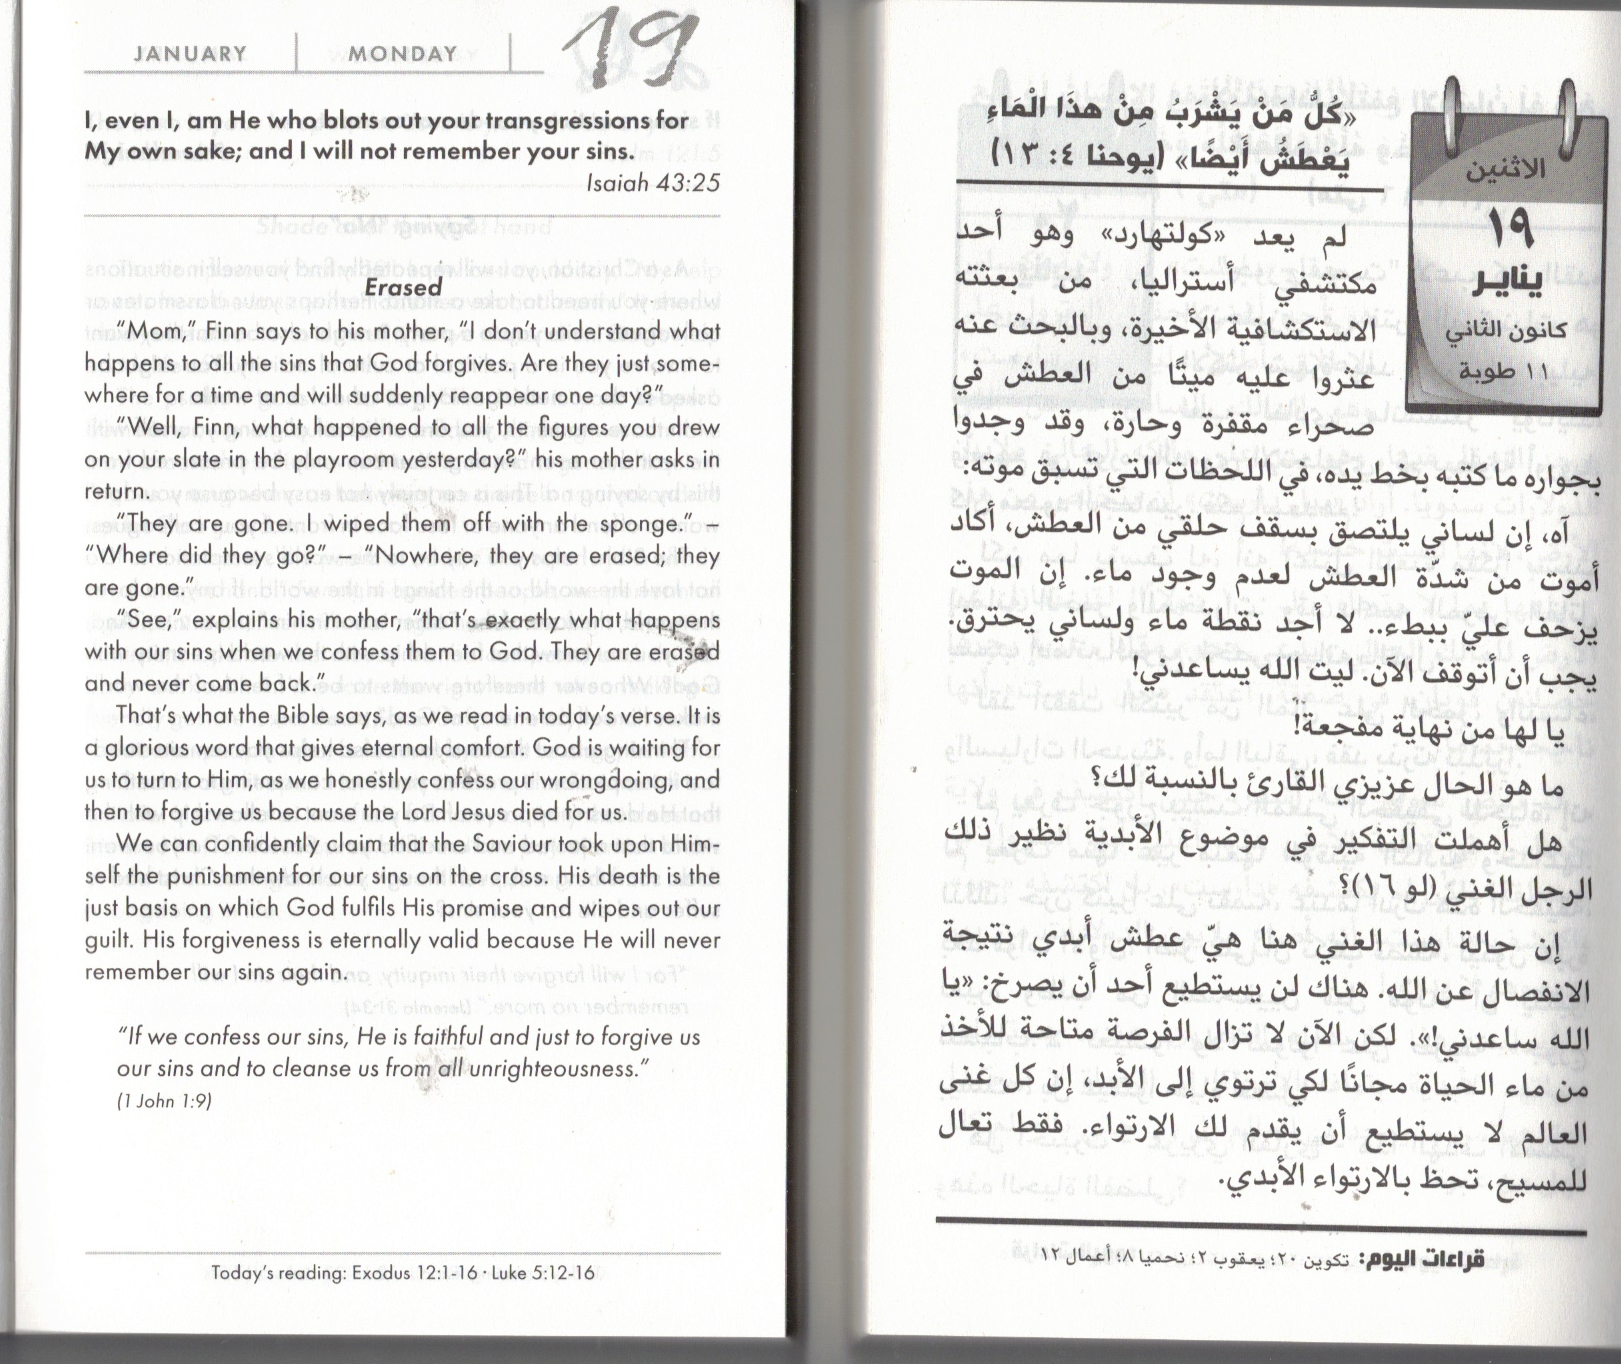 JANUARY | MONDAY | 19
I, even I, am He who blots out your transgressions for
My own sake; and I will not remember your sins.
Isaiah 43:25
Erased
“Mom,” Finn says to his mother, “I don’t understand what
happens to all the sins that God forgives. Are they just some-
where for a time and will suddenly reappear one day?”
“Well, Finn, what happened to all the figures you drew
on your slate in the playroom yesterday?” his mother asks in
return.
“They are gone. I wiped them off with the sponge.” –
“Where did they go?” – “Nowhere, they are erased; they
are gone.”
“See,” explains his mother, “that’s exactly what happens
with our sins when we confess them to God. They are erased
and never come back.”
That’s what the Bible says, as we read in today’s verse. It is
a glorious word that gives eternal comfort. God is waiting for
us to turn to Him, as we honestly confess our wrongdoing, and
then to forgive us because the Lord Jesus died for us.
We can confidently claim that the Saviour took upon Him-
self the punishment for our sins on the cross. His death is the
just basis on which God fulfils His promise and wipes out our
guilt. His forgiveness is eternally valid because He will never
remember our sins again.
“If we confess our sins, He is faithful and just to forgive us
our sins and to cleanse us from all unrighteousness.”
(1 John 1:9)
Today’s reading: Exodus 12:1-16 · Luke 5:12-16
الاثنين
١٩
يناير
كانون الثاني
١١ طوبة
«كُلُّ مَنْ يَشْرَبُ مِنْ هذَا الْمَاءِ
يَعْطَشُ أَيْضًا» (يوحنا ٤: ١٣)
لم يعد «كولتهارد» وهو أحد
مكتشفي أستراليا، من بعثته
الاستكشافية الأخيرة، وبالبحث عنه
عثروا عليه ميتًا من العطش في
صحراء مقفرة وحارة، وقد وجدوا
بجواره ما كتبه بخط يده، في اللحظات التي تسبق موته:
آه، إن لساني يلتصق بسقف حلقي من العطش، أكاد
أموت من شدّة العطش لعدم وجود ماء. إن الموت
يزحف عليّ ببطء.. لا أجد نقطة ماء ولساني يحترق.
يجب أن أتوقف الآن. ليت الله يساعدني!
يا لها من نهاية مفجعة!
ما هو الحال عزيزي القارئ بالنسبة لك؟
هل أهملت التفكير في موضوع الأبدية نظير ذلك
الرجل الغني (لو ١٦)؟
إن حالة هذا الغني هنا هيّ عطش أبدي نتيجة
الانفصال عن الله. هناك لن يستطيع أحد أن يصرخ: «يا
الله ساعدني!». لكن الآن لا تزال الفرصة متاحة للأخذ
من ماء الحياة مجانًا لكي ترتوي إلى الأبد، إن كل غنى
العالم لا يستطيع أن يقدم لك الارتواء. فقط تعال
للمسيح، تحظ بالارتواء الأبدي.
قراءات اليوم: تكوين ٢٠؛ يعقوب ٢؛ نحميا ٨؛ أعمال ١٢